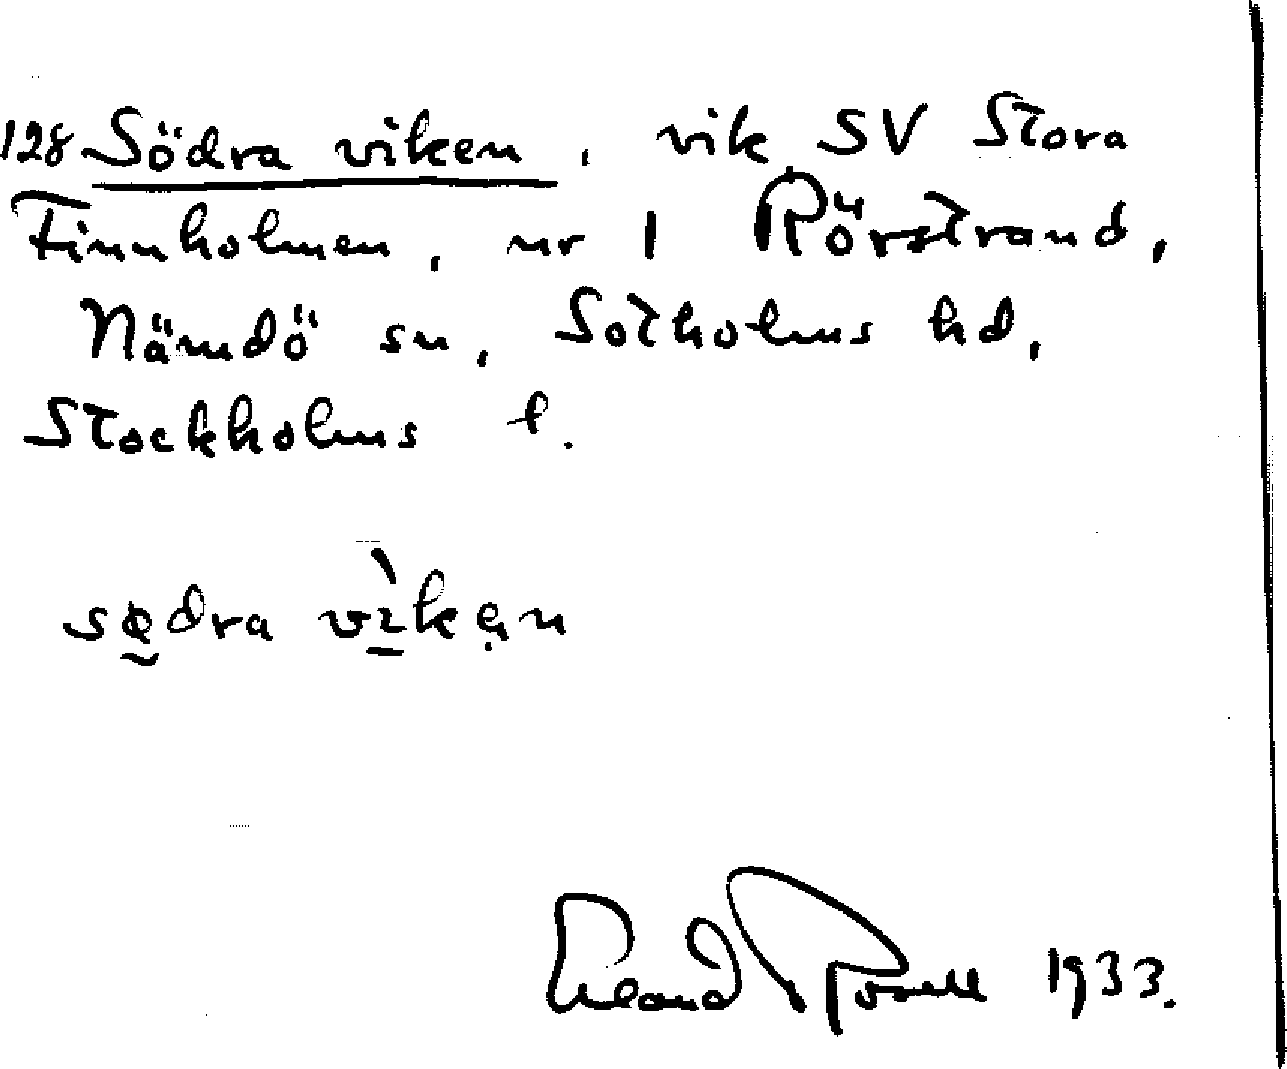 128 Södra viken, vik SV Stora
Finnholmen, nr 1 Rörstrand,
Nämdö sn, Sotholms hd,
Stockholms l.
sødra vìkẹn
Erland Rosell 1933.